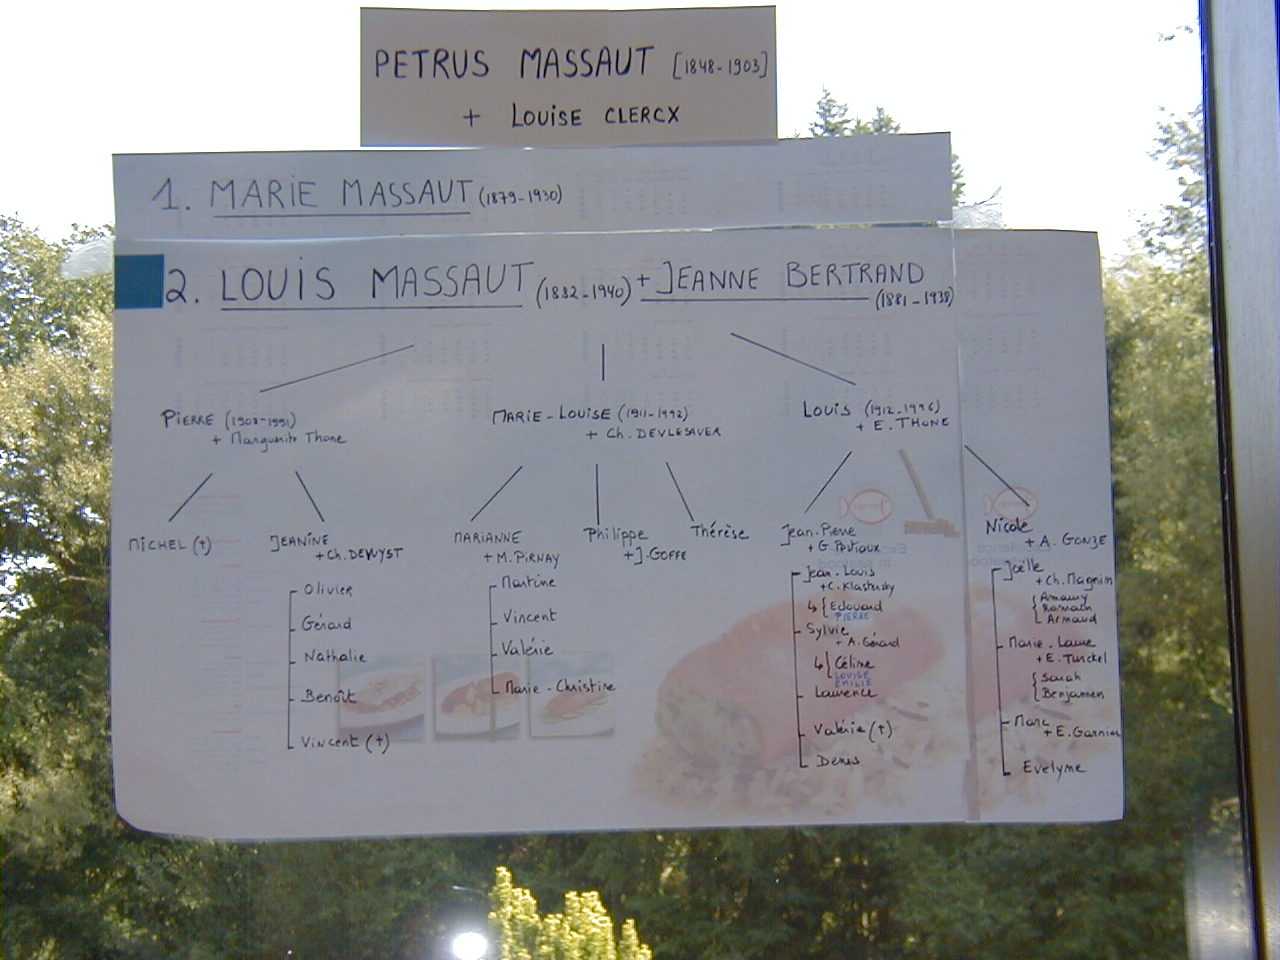 PETRUS MASSAUT [1848-1903]
+ LOUISE CLERCX
1. MARIE MASSAUT (1879-1930)
2. LOUIS MASSAUT (1882-1940) + JEANNE BERTRAND
(1881-1938)
PIERRE (1908-1991)
+ Marguerite Thone
MARIE-LOUISE (1911-1992)
+ Ch. DEVLESAVER
LOUIS (1912-1996)
+ E. THONE
MICHEL (†)
JEANINE
+ Ch. DEWYST
Olivier
Gérard
Nathalie
Benoît
Vincent (†)
MARIANNE
+ M. PIRNAY
Martine
Vincent
Valérie
Marie-Christine
Philippe
+ J. GOFFE
Thérèse
Jean-Pierre
+ G.
Jean-Louis
+ C.
↳ { Edouard
PIERRE
Sylvie
+ A. Gérard
↳ { Céline
LOUISE
EMILIE
Laurence
Valérie (†)
Denis
Nicole
+ A. GONZE
Joëlle
+ Ch. Magnin
Amaury
Romain
Armand
Marie-Laure
+ E. Turckel
Sarah
Benjamin
Marc
+ E. Garnier
Evelyne